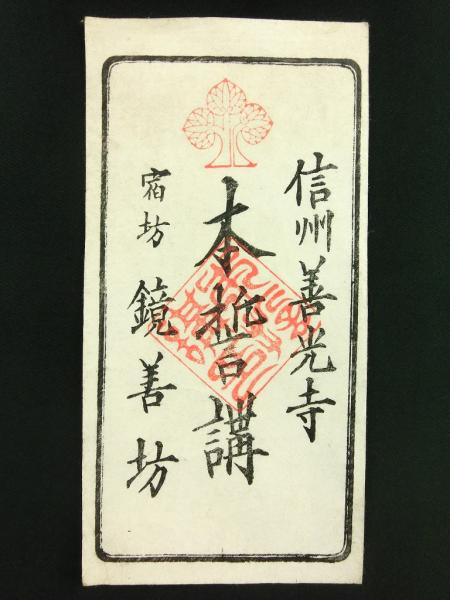 信州善光寺
本誓講
宿坊 鏡善坊